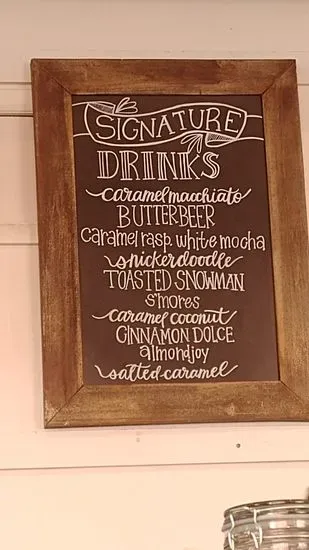 SIGNATURE
DRINKS
caramel macchiato
BUTTERBEER
Caramel rasp. white mocha
snickerdoodle
TOASTED SNOWMAN
s'mores
caramel coconut
CINNAMON DOLCE
almondjoy
salted caramel